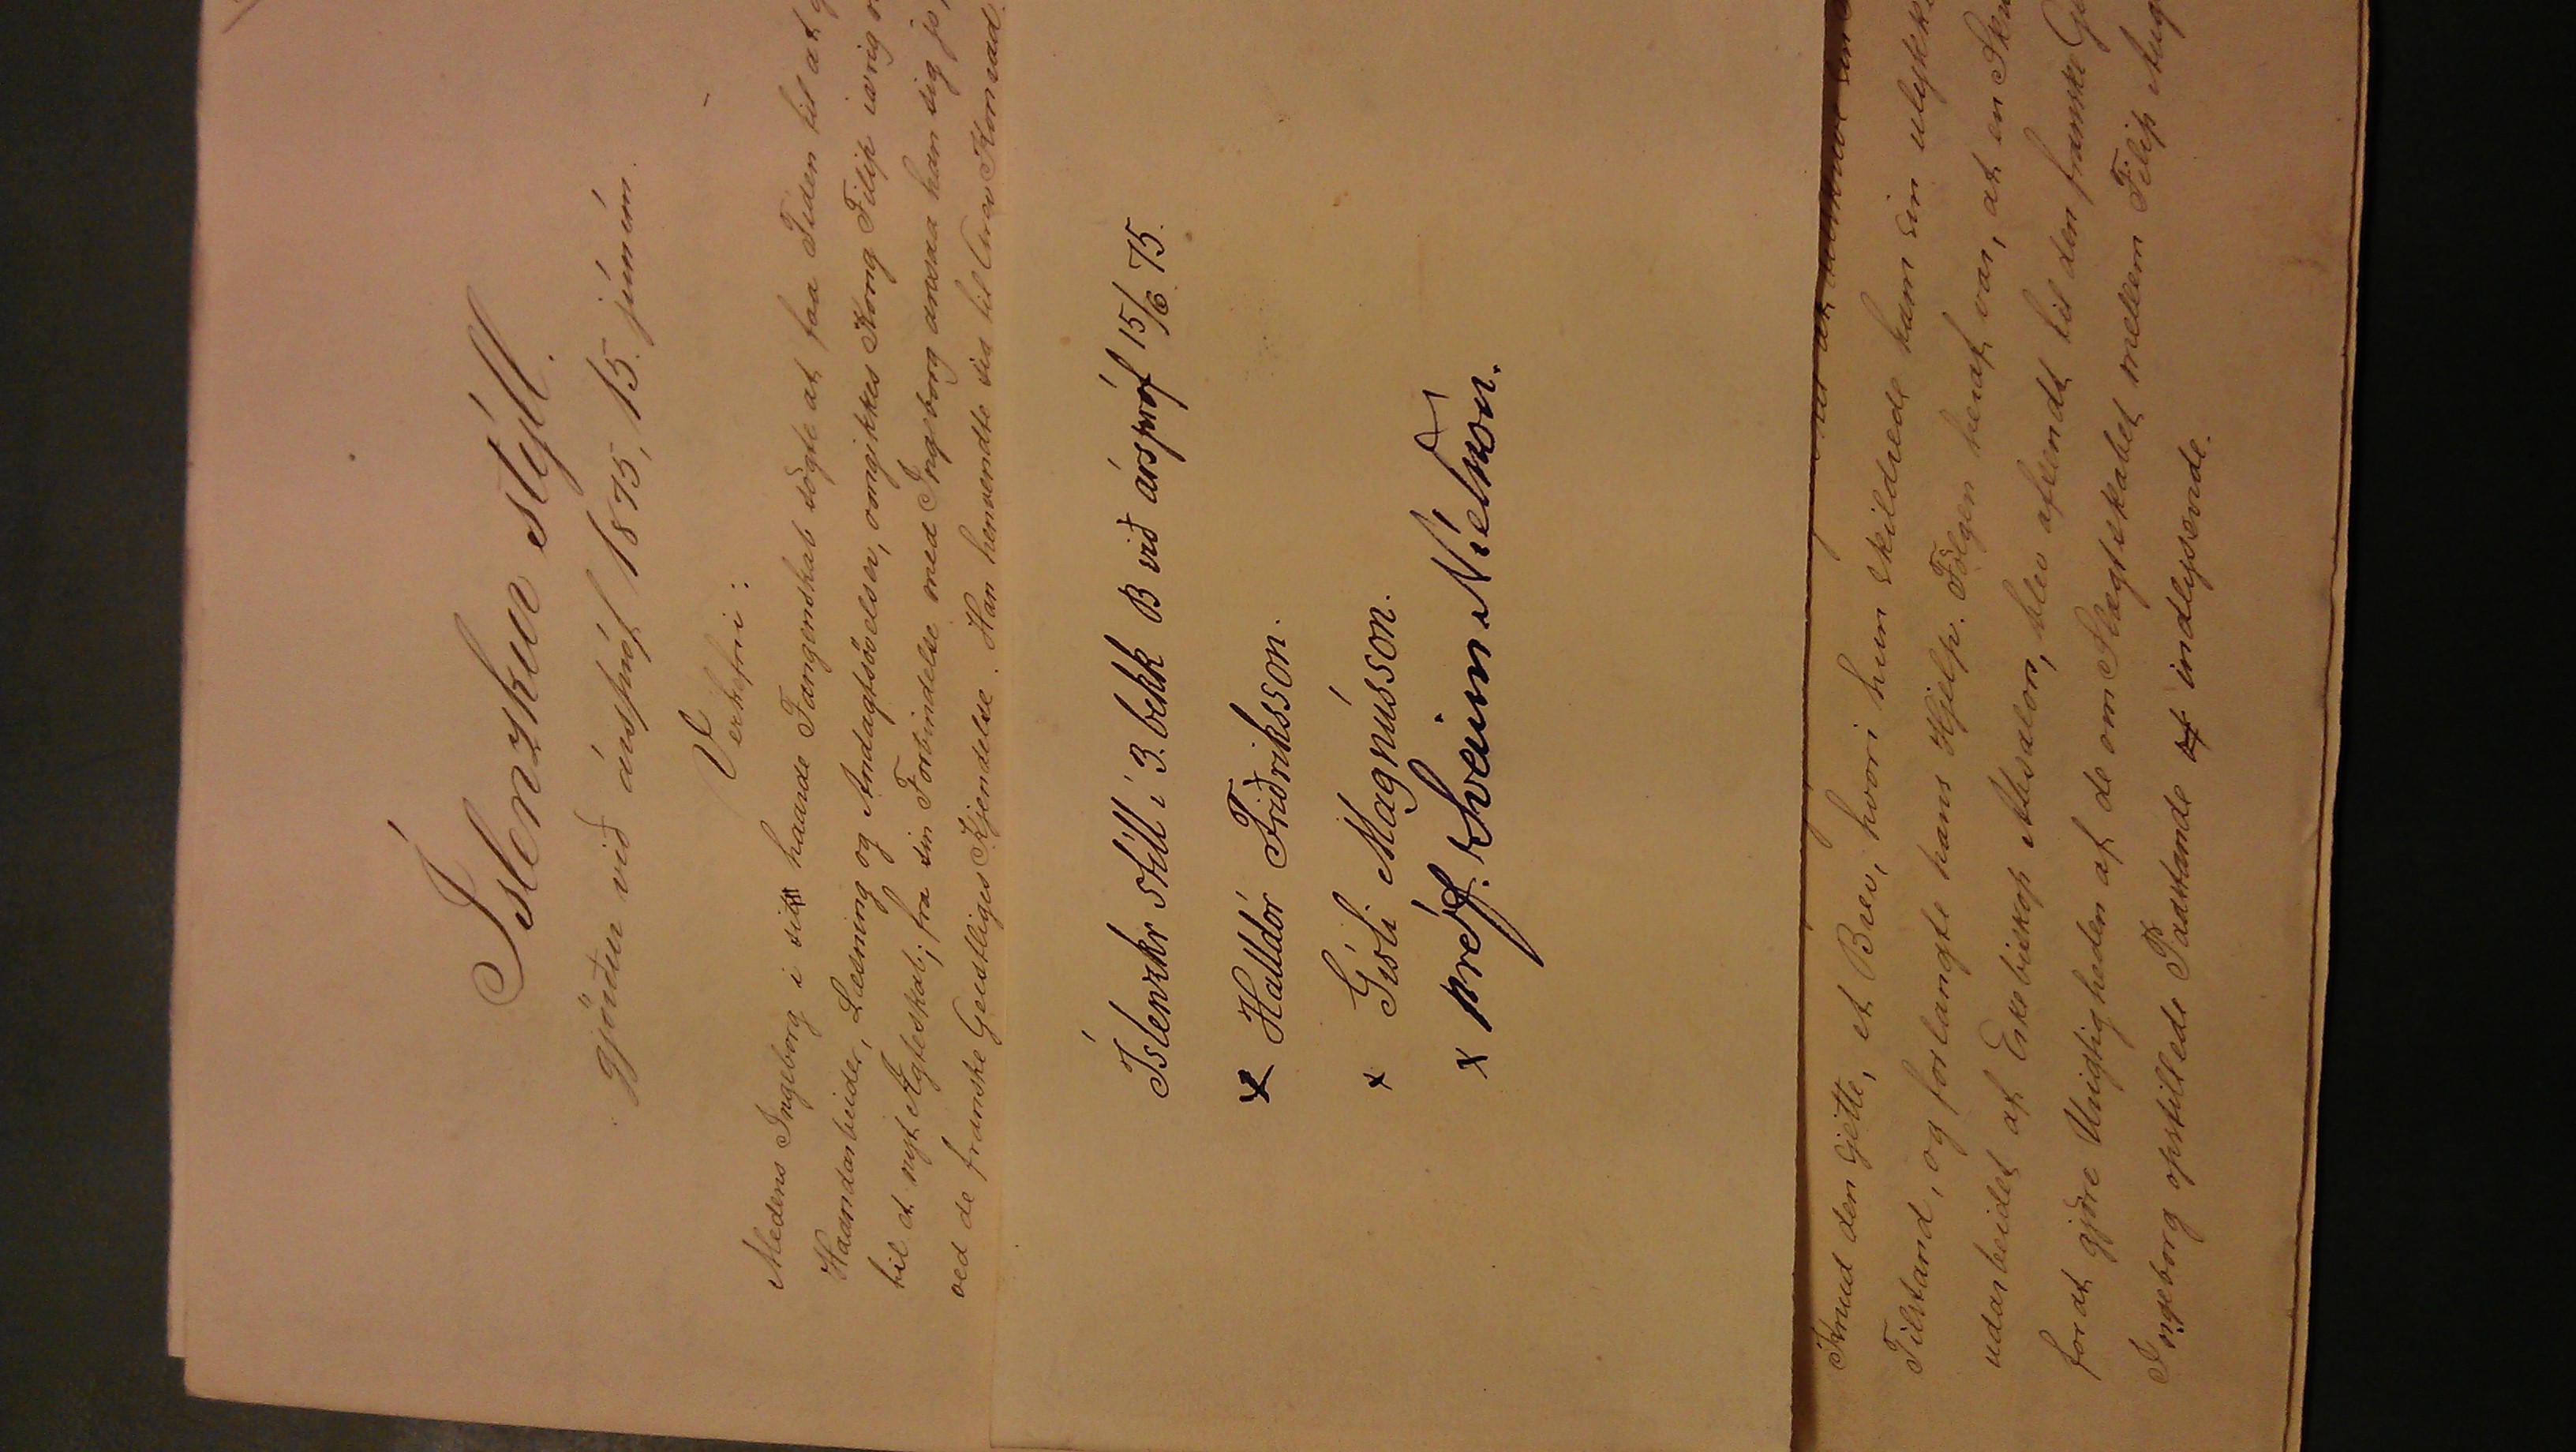 Íslenzkur stýll.
gjörður við árspróf 1875, 15. júním.
Verkefni:
Medens Ingeborg i sit haarde Fangenskab sögte at faa Tiden til at
Haandarbeider, Læsning og Andagtsövelser, omgikkes Kong Filip ivrig
til et nyt Ægteskab; fra sin Forbindelse med Ingeborg ansaa han sig jo,
ved de franske Geistliges Kjendelse. Han henvendte sig til Konrad
Íslenzkr stíll í 3. bekk B við árspróf 15/6 75.
x Halldór Friðriksson.
x Gísli Magnússon.
x próf. Sveinn Níelsson.
Knud den Sjette, et Brev, hvori hun skildrede ham sin
Tilstand, og forlangte hans Hjelp. Fölgen heraf var, at en
udarbeidet af Erkebiskop Absalon, blev afsendt til den franske
for at gjöre Urigtigheden af de om Slægtskabet mellem Filip
Ingeborg opstillede Paastande indlysende.